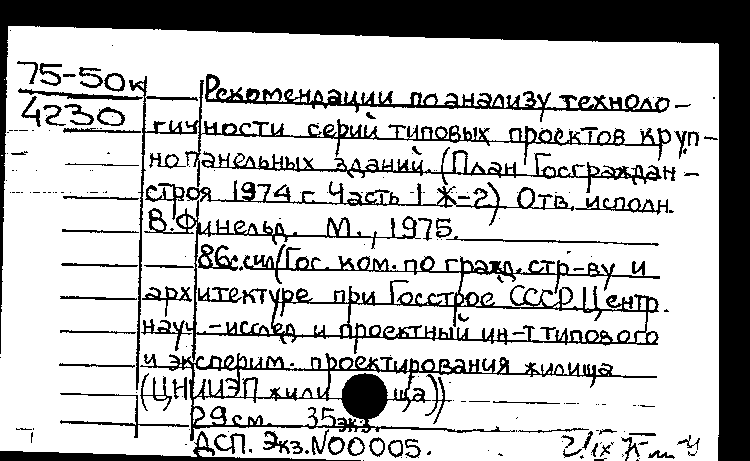 75-50к
4230
Рекомендации по анализу техноло-
гичности серий типовых проектов круп-
нопанельных зданий. (План Госграждан-
строя 1974 г. Часть 1 Ж-2) Отв. исполн.
В. Финельд. М., 1975.
86с. сил (Гос. ком. по гражд. стр-ву и
архитектуре при Госстрое СССР. Центр.
науч.-исслед и проектный ин-т типового
и эксперим. проектирования жилища
(ЦНИИЭП жилища))
29 см. 35 экз.
ДСП. Экз. N00005.